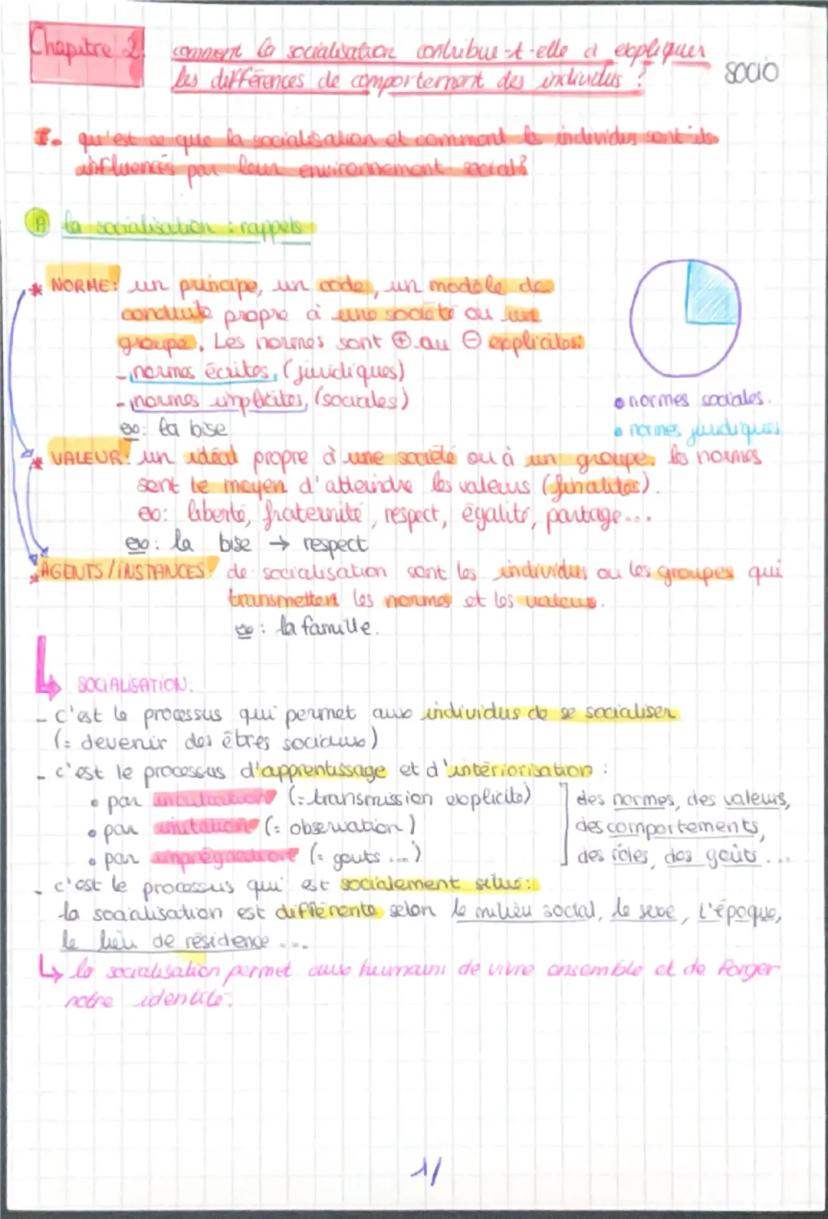 Chapitre 2
comment la socialisation contribue-t-elle à expliquer
les différences de comportement des individus ?
SOCIO
I- qu'est ce que la socialisation et comment les individus sont ils
influencés par leur environnement social ?
A la socialisation : rappels
* NORME : un principe, un code, un modèle de
conduite propre à une société ou un
groupe. Les normes sont ⊕ ou ⊖ explicites:
- normes écrites, (juridiques)
- normes implicites, (sociales)
ex: la bise
• normes sociales.
• normes juridiques
* VALEUR : un idéal propre à une société ou à un groupe. les normes
sont le moyen d'atteindre les valeurs (finalités).
ex: liberté, fraternité, respect, égalité, partage...
ex: la bise → respect
* AGENTS/INSTANCES : de socialisation sont les individus ou les groupes qui
transmettent les normes et les valeurs.
ex : la famille.
↳ SOCIALISATION.
- c'est le processus qui permet aux individus de se socialiser
(= devenir des êtres sociaux)
- c'est le processus d'apprentissage et d'intériorisation :
• par inculcation (= transmission explicite)
• par imitation (= observation)
• par imprégnation (= gouts ...)
des normes, des valeurs,
des comportements,
des rôles, des goûts ...
- c'est le processus qui est socialement situé:
la socialisation est différente selon le milieu social, le sexe, l'époque,
le lieu de résidence ...
↳ la socialisation permet aux humains de vivre ensemble et de forger
notre identité.
1/